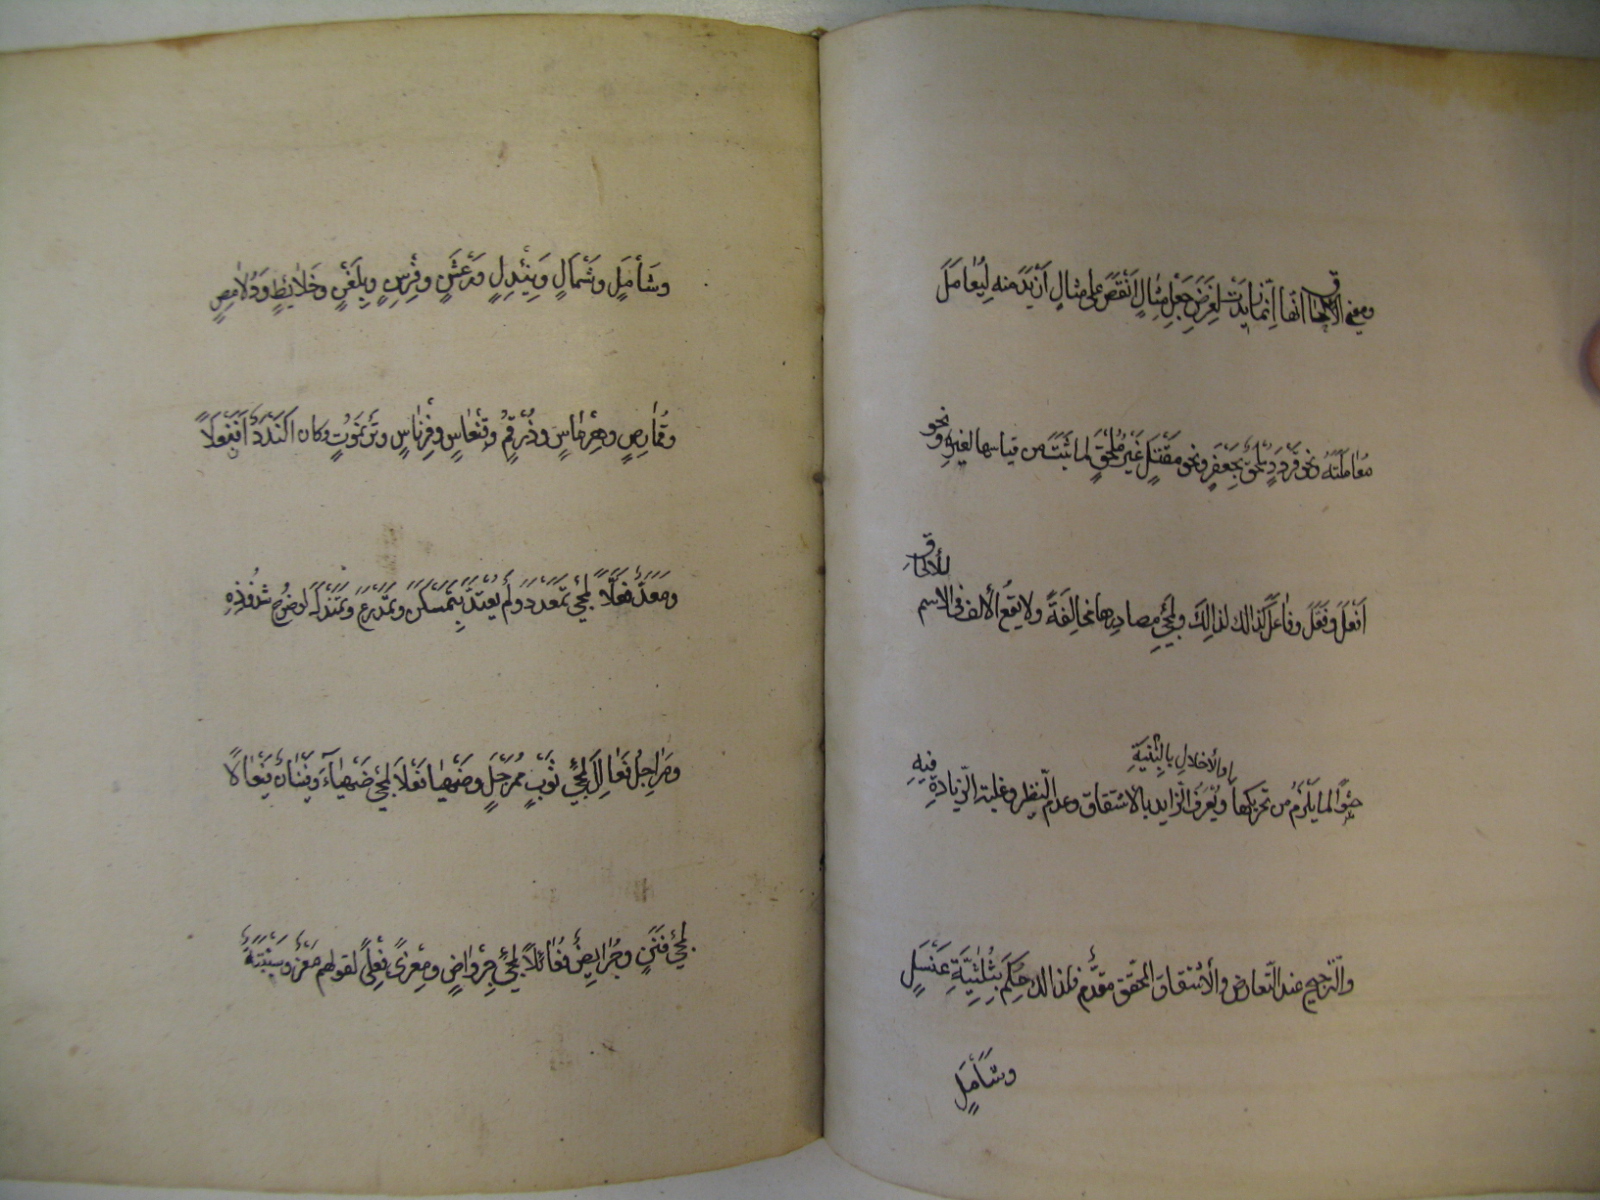 ومعنى الالحاق انها انّما زيدت لغرض جعل مثالٍ انقص على مثالٍ ازيد منه ليُعامل
معاملته ونحو قردد ملحق بجعفر ونحو مقتل غير ملحق لما ثبت من قياسها لغيره ونحو
افعل وفعّل وفاعل كذالك لذالك ولمجئ مصادرها مخالفة ولا يقع الالف فى الاسم للألحاق
حشواً لما يلزم من تحريكها او الأخلال بالبنية ويعرف الزّايد بالاشتقاق وعدم النّظير وغلبة الزّيادة فيه
والترجيح عند التّعارض والأشتقاق المحقّق مقدّم فلذالك حكم بثلثيّة عنسل
وشأمل
وشأمل وشمأل ونئدل ورعشن وفرسن وبلغن وحطائط ودلامص
وقمارص وهرماس وزرقم وقنعاس وفرناس وترنموت وكان الندد افنعلاً
ومعدّ فعلاً لمجئ تمعدد ولم يعتدّ بتمسكن وتمدرع وتمندل لوضوح شذوذه
ومراجل فعالل لمجئ ثوب ممرجل وضهيا فعلأ لمجئ ضهياء وفينان فيعالاً
لمجئ فنن وجرائض فعائلاً لمجئ جرواض ومعزى فعلى لقولهم معز وسنبتة